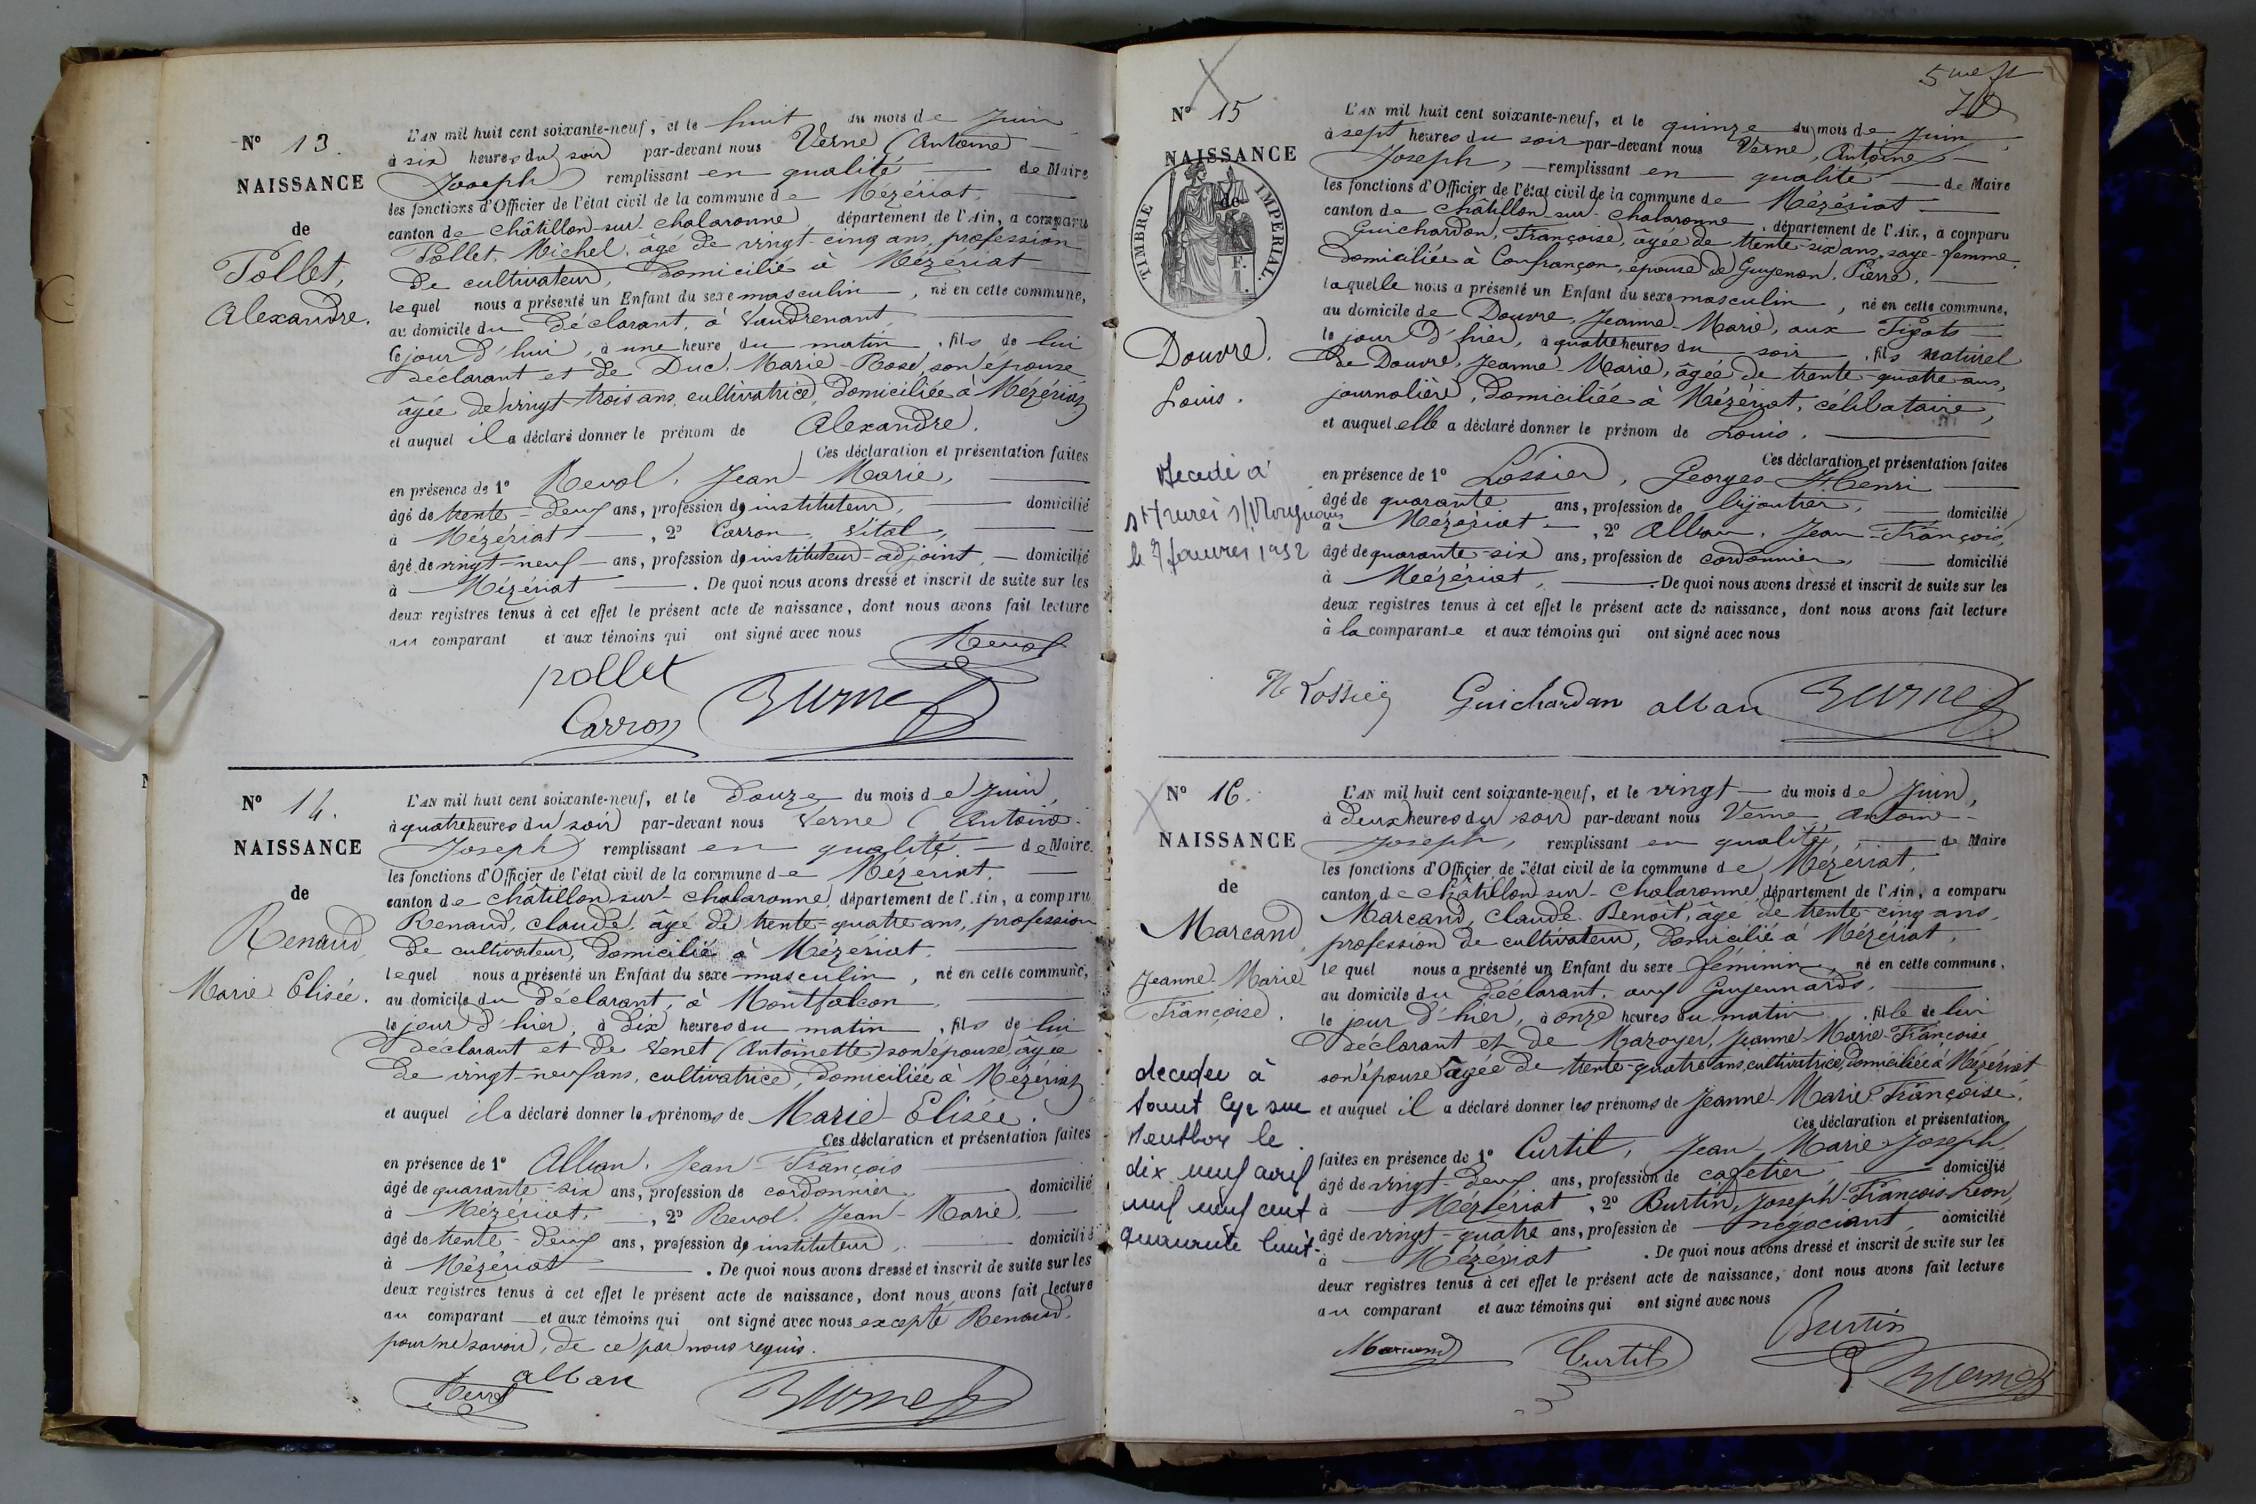 N° 13.
NAISSANCE
de
Pollet,
Alexandre.
L'AN mil huit cent soixante-neuf, et le huit du mois de Juin
à six heures du soir par-devant nous Verne (Antoine
Joseph) remplissant en qualité de Maire
les fonctions d'Officier de l'état civil de la commune de Mézériat,
canton de Châtillon-sur-Chalaronne, département de l'Ain, a comparu
Pollet, Michel, âgé de vingt-cinq ans, profession
de cultivateur, domicilié à Mézériat
lequel nous a présenté un Enfant du sexe masculin, né en cette commune,
au domicile du déclarant, à Vaudrenant,
le jour d'hui, à une heure du matin, fils de lui
déclarant et de Duc, Marie-Rose, son épouse
âgée de vingt-trois ans, cultivatrice, domiciliée à Mézériat
et auquel il a déclaré donner le prénom de Alexandre.
Ces déclaration et présentation faites
en présence de 1° Revol, Jean-Marie,
âgé de trente-deux ans, profession d'instituteur, domicilié
à Mézériat, 2° Carron, Vital,
âgé de vingt-neuf ans, profession d'instituteur-adjoint, domicilié
à Mézériat. De quoi nous avons dressé et inscrit de suite sur les
deux registres tenus à cet effet le présent acte de naissance, dont nous avons fait lecture
au comparant et aux témoins qui ont signé avec nous
Revol
pollet
Carron Verne
N° 14.
NAISSANCE
de
Renaud,
Marie Elisée.
L'AN mil huit cent soixante-neuf, et le douze du mois de Juin,
à quatre heures du soir par-devant nous Verne (Antoine-
Joseph) remplissant en qualité de Maire
les fonctions d'Officier de l'état civil de la commune de Mézériat,
canton de Châtillon-sur-Chalaronne, département de l'Ain, a comparu
Renaud, Claude, âgé de trente-quatre ans, profession
de cultivateur, domicilié à Mézériat,
lequel nous a présenté un Enfant du sexe masculin, né en cette commune,
au domicile du déclarant, à Montfalcon,
le jour d'hier, à dix heures du matin, fils de lui
déclarant et de Venet (Antoinette) son épouse, âgée
de vingt-neuf ans, cultivatrice, domiciliée à Mézériat
et auquel il a déclaré donner les prénoms de Marie-Elisée.
Ces déclaration et présentation faites
en présence de 1° Alban, Jean-François
âgé de quarante-six ans, profession de cordonnier, domicilié
à Mézériat, 2° Revol, Jean-Marie,
âgé de trente-deux ans, profession d'instituteur, domicilié
à Mézériat. De quoi nous avons dressé et inscrit de suite sur les
deux registres tenus à cet effet le présent acte de naissance, dont nous avons fait lecture
au comparant et aux témoins qui ont signé avec nous excepté Renaud,
pour ne savoir, de ce par nous requis.
alban
Revol Verne
5me ft
N° 15
NAISSANCE
de
TIMBRE IMPERIAL.
Douvre,
Louis.
Decedé à
le 7 janvier 1952
L'AN mil huit cent soixante-neuf, et le quinze du mois de Juin,
à sept heures du soir par-devant nous Verne, Antoine
Joseph, remplissant en qualité de Maire
les fonctions d'Officier de l'état civil de la commune de Mézériat
canton de Châtillon-sur-Chalaronne, département de l'Ain, a comparu
Guichardon, Françoise, âgée de trente-six ans, sage-femme,
domiciliée à Confrançon, épouse de Guyenon, Pierre,
laquelle nous a présenté un Enfant du sexe masculin, né en cette commune,
au domicile de Douvre, Jeanne-Marie, aux Tigots
le jour d'hier, à quatre heures du soir, fils naturel
de Douvre, Jeanne-Marie, âgée de trente-quatre ans,
journalière, domiciliée à Mézériat, célibataire,
et auquel elle a déclaré donner le prénom de Louis.
Ces déclaration et présentation faites
en présence de 1° Lossier, Georges-Henri
âgé de quarante ans, profession de bijoutier, domicilié
à Mézériat, 2° Alban, Jean-François,
âgé de quarante-six ans, profession de cordonnier, domicilié
à Mézériat. De quoi nous avons dressé et inscrit de suite sur les
deux registres tenus à cet effet le présent acte de naissance, dont nous avons fait lecture
à la comparante et aux témoins qui ont signé avec nous
H Lossier Guichardan alban Verne
N° 16.
NAISSANCE
de
Marcand,
Jeanne-Marie
Françoise.
decedee à
saint Cyr sur
Menthon le
dix neuf avril
mil neuf cent
quarante huit
L'AN mil huit cent soixante-neuf, et le vingt du mois de Juin,
à deux heures du soir par-devant nous Verne Antoine-
Joseph, remplissant en qualité de Maire
les fonctions d'Officier de l'état civil de la commune de Mézériat,
canton de Châtillon-sur-Chalaronne, département de l'Ain, a comparu
Marcand, Claude-Benoît, âgé de trente-cinq ans,
profession de cultivateur, domicilié à Mézériat,
lequel nous a présenté un Enfant du sexe féminin, né en cette commune,
au domicile du déclarant, aux Guyennards,
le jour d'hier, à onze heures du matin, fille de lui
déclarant et de Mazoyer, Jeanne-Marie-Françoise
son épouse âgée de trente-quatre ans, cultivatrice, domiciliée à Mézériat
et auquel il a déclaré donner les prénoms de Jeanne-Marie-Françoise.
Ces déclaration et présentation
faites en présence de 1° Curtil, Jean Marie-Joseph
âgé de vingt-deux ans, profession de cafetier domicilié
à Mézériat, 2° Burtin, Joseph-François-Léon,
âgé de vingt-quatre ans, profession de négociant, domicilié
à Mézériat. De quoi nous avons dressé et inscrit de suite sur les
deux registres tenus à cet effet le présent acte de naissance, dont nous avons fait lecture
au comparant et aux témoins qui ont signé avec nous
Burtin
Marcand Curtil Verne